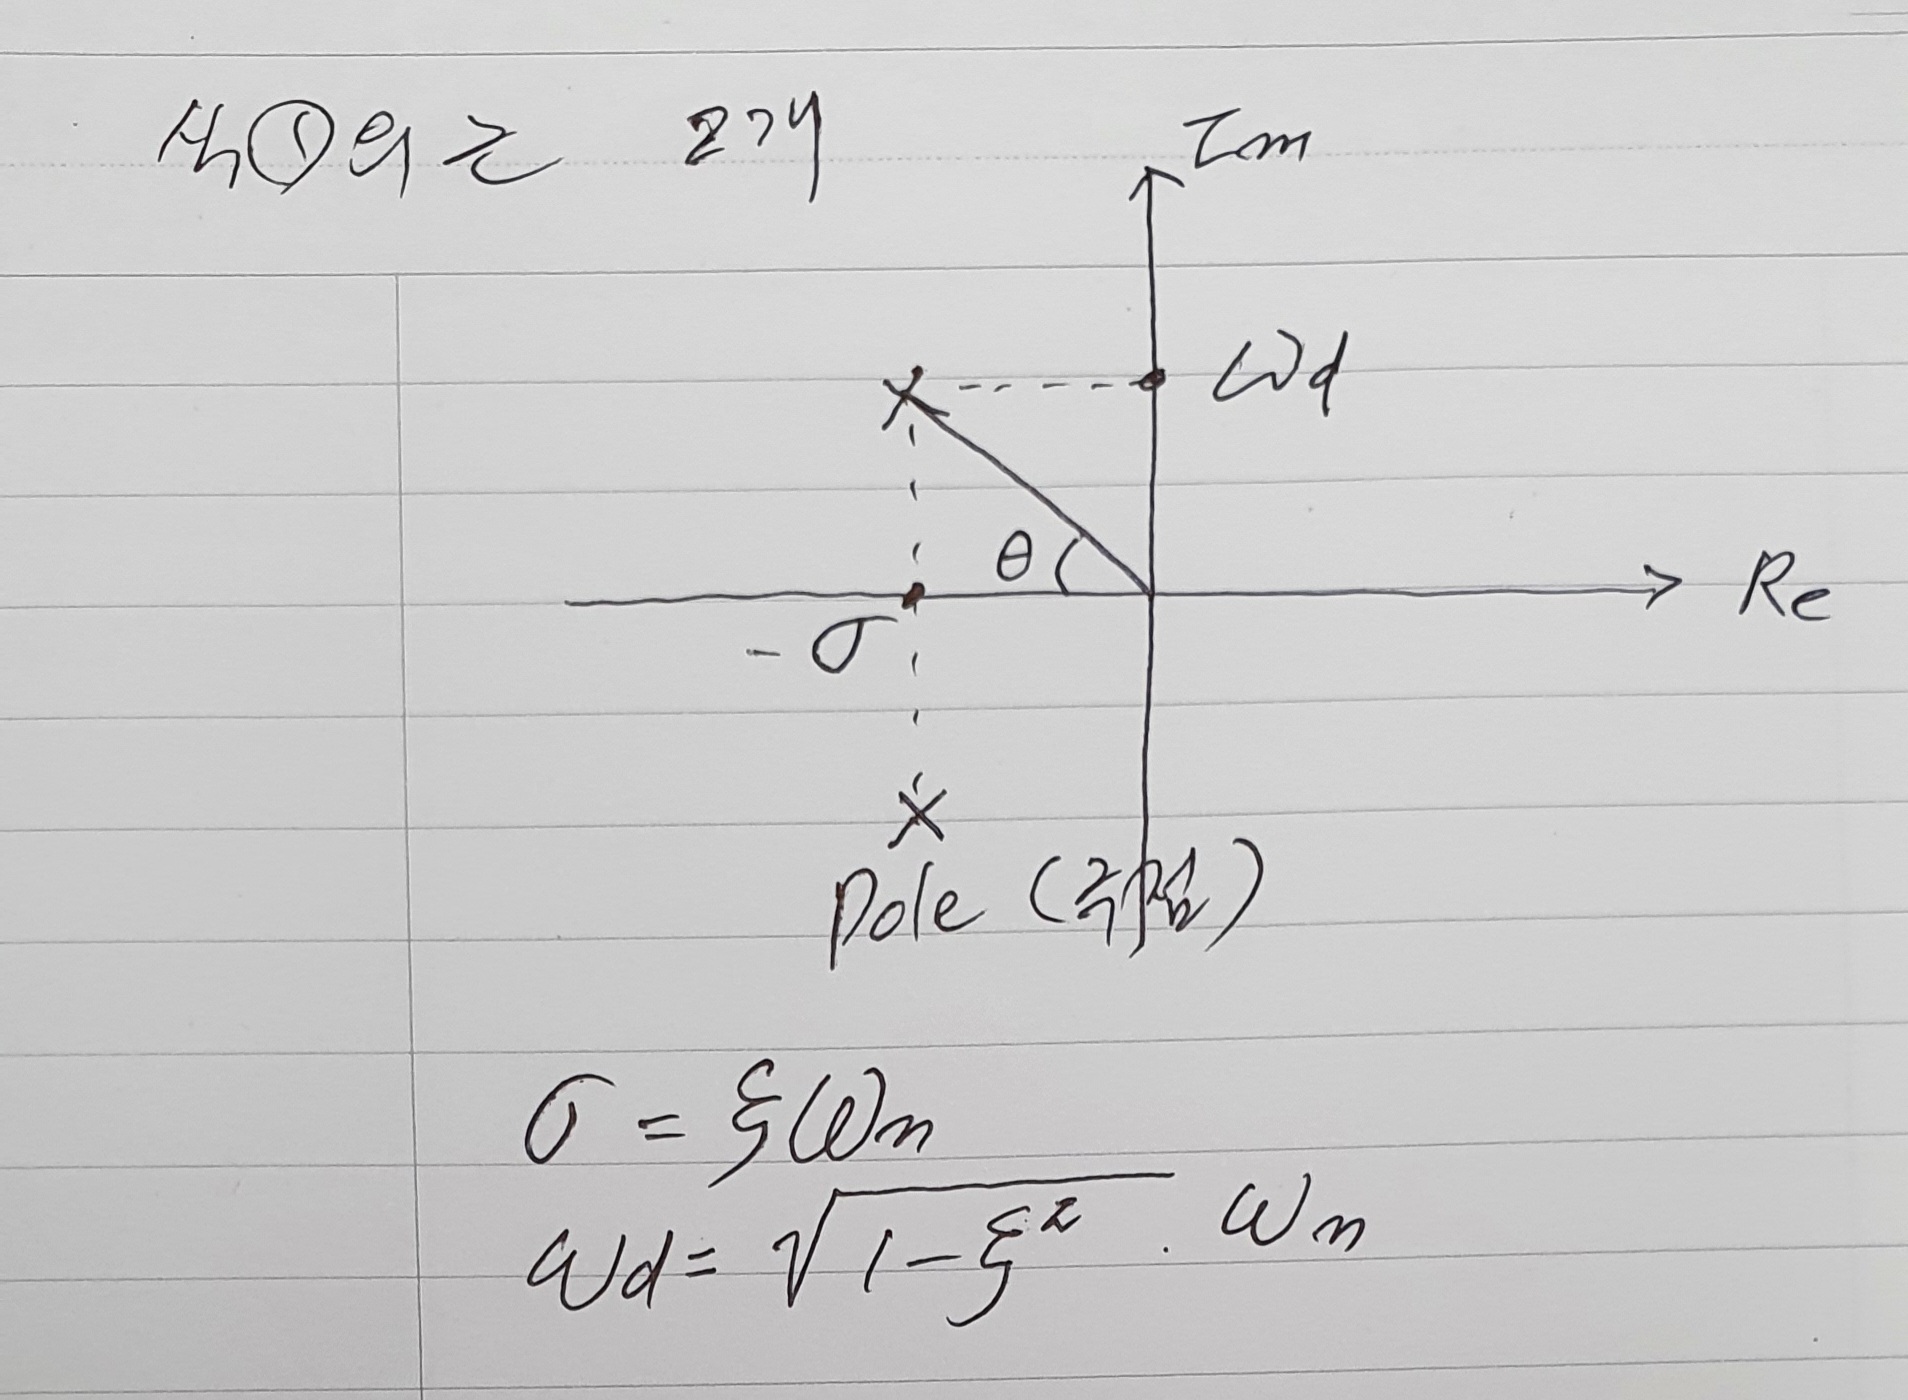 식①의 근 2개
Im
ωd
θ
Re
-σ
Pole (극점)
σ = ξωn
ωd = √1-ξ² · ωn